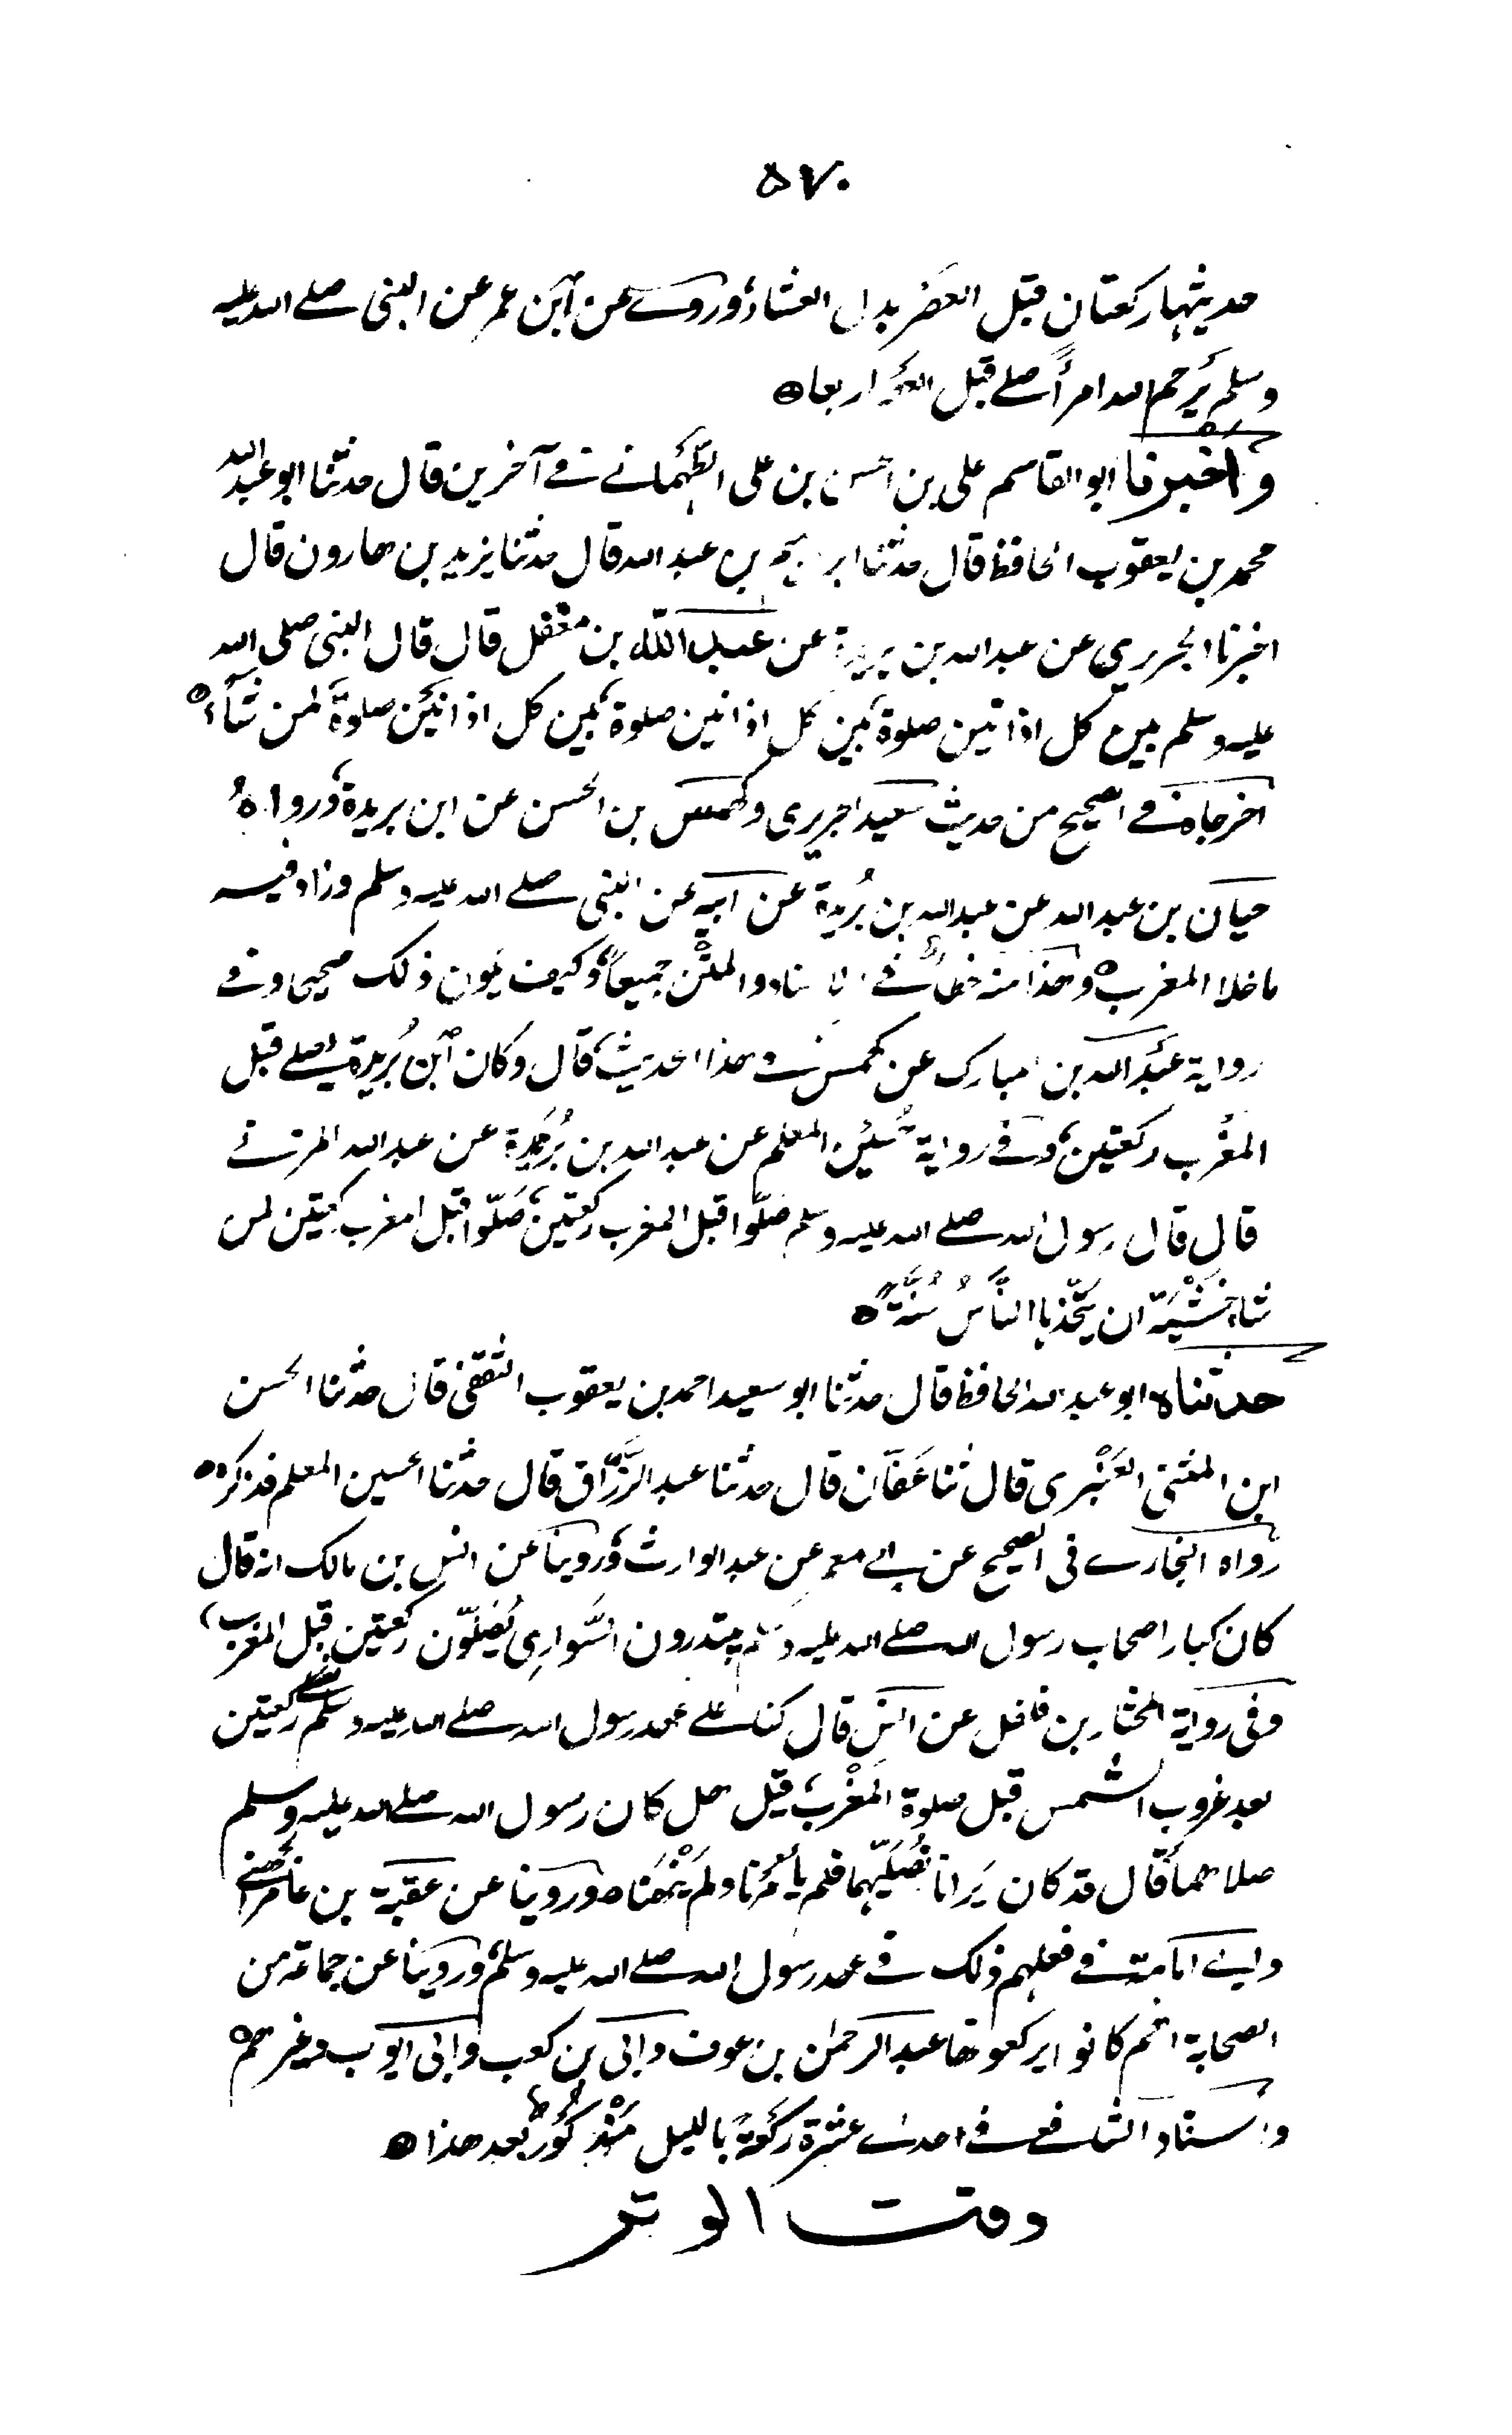 ٥٧٠
حديثها ركعتان قبل العصر بدل العشاء وروى عن ابن عمر عن النبى صلى الله عليه
وسلم يرحم الله امرأً صلى قبل العصر اربعا ه
واخبرنا ابو القاسم على بن الحسن بن على الطهمانى فى آخرين قال حدثنا ابو عبد الله
محمد بن يعقوب الحافظ قال حدثنا ابراهيم بن عبد الله قال حدثنا يزيد بن هارون قال
اخبرنا الجريرى عن عبد الله بن بريدة عن عبد الله بن مغفل قال قال النبى صلى الله
عليه وسلم بين كل اذانين صلوة بين كل اذانين صلوة بين كل اذانين صلوة لمن شاء ه
اخرجاه فى الصحيح من حديث سعيد الجريرى وكهمس بن الحسن عن ابن بريدة ورواه
حيان بن عبد الله عن عبد الله بن بُريدة عن ابيه عن النبى صلى الله عليه وسلم وزاد فيه
ما خلا المغرب ه وهذا منه خطأ فى الاسناد والمتن جميعاً وكيف يكون ذلك صحيحا وفى
رواية عبد الله بن المبارك عن كهمس فى هذا الحديث قال وكان ابن بُريدة يصلى قبل
المغرب ركعتين وفى رواية حسين المعلم عن عبد الله بن بُريدة عن عبد الله المزنى
قال قال رسول الله صلى الله عليه وسلم صلّوا قبل المغرب ركعتين صَلّوا قبل المغرب ركعتين لمن
شاء خَشْيَة ان يتّخذها النّاسُ سُنّةً ه
حدثناه ابو عبد الله الحافظ قال حدثنا ابو سعيد احمد بن يعقوب الثقفى قال حدثنا الحسن
ابن المثنى العنْبرى قال ثنا عَفّان قال حدثنا عبد الرّزّاق قال حدثنا الحسين المعلم فذكره ه
رواه البخارى فى الصحيح عن ابى معمر عن عبد الوارث وروينا عن انس بن مالك انه قال
كان كبار اصحاب رسول الله صلى الله عليه وسلم يبتدرون السَّوارِى يُصَلّون ركعتين قبل المغرب
وفى رواية المختار بن فلفل عن انس قال كنا على عهد رسول الله صلى الله عليه وسلم نصلى ركعتين
بعد غروب الشمس قبل صلوة المَغْرب قيل هل كان رسول الله صلى الله عليه وسلم
صلاهما قال قد كان يَرانا نُصَلّيهما فلم يأمُرْنا ولم يَنْهَنا ه وروينا عن عقبة بن عامر الجهنى
وابى امامة فى فعلهم ذلك فى عهد رسول الله صلى الله عليه وسلم وروينا عن جماعة من
الصحابة انهم كانوا يركعونها عبد الرحمٰن بن عوف وابى بن كعب وابى ايوب وغيرهم
واسناد الشافعى فى احدى عشرة ركعةً بالليل مَذْكُورٌ بعد هذا ه
وقت الوتر